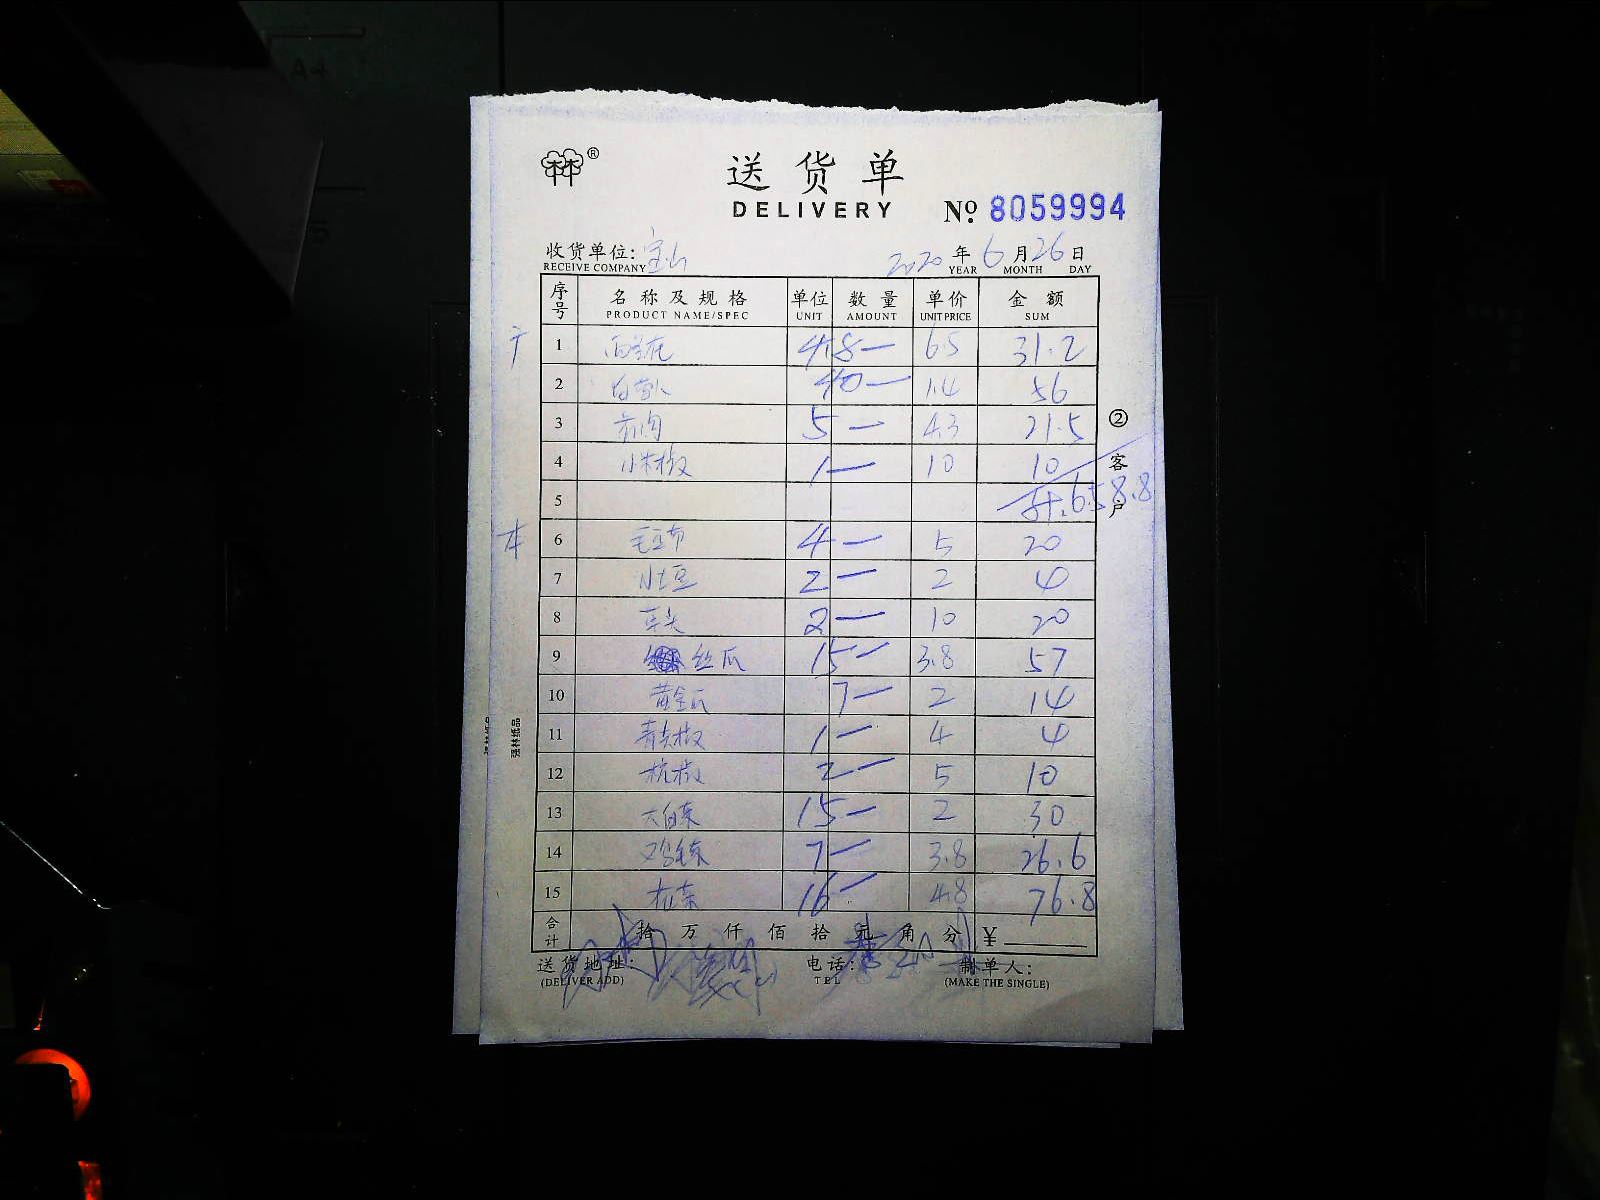 送货单
DELIVERY
№ 8059994
收货单位: 宝山 2020 年 6 月 26 日
RECEIVE COMPANY YEAR MONTH DAY
序号 名称及规格 单位 数量 单价 金额
PRODUCT NAME/SPEC UNIT AMOUNT UNIT PRICE SUM
1 西兰花 4.8— 6.5 31.2
2 白萝卜 40— 1.4 56
3 5— 4.3 21.5
4 小米椒 1— 10 10
5 计:658.8
6 4— 5 20
7 小土豆 2— 2 4
8 芋头 2— 10 20
9 丝瓜 15— 3.8 57
10 黄金瓜 7— 2 14
11 青尖椒 1— 4 4
12 杭椒 2— 5 10
13 大白菜 15— 2 30
14 7— 3.8 26.6
15 16— 4.8 76.8
合计 拾 万 仟 佰 拾 元 角 分 ¥
送货地址: 电话: 制单人:
(DELIVER ADD) TEL (MAKE THE SINGLE)
② 客户
强林纸品